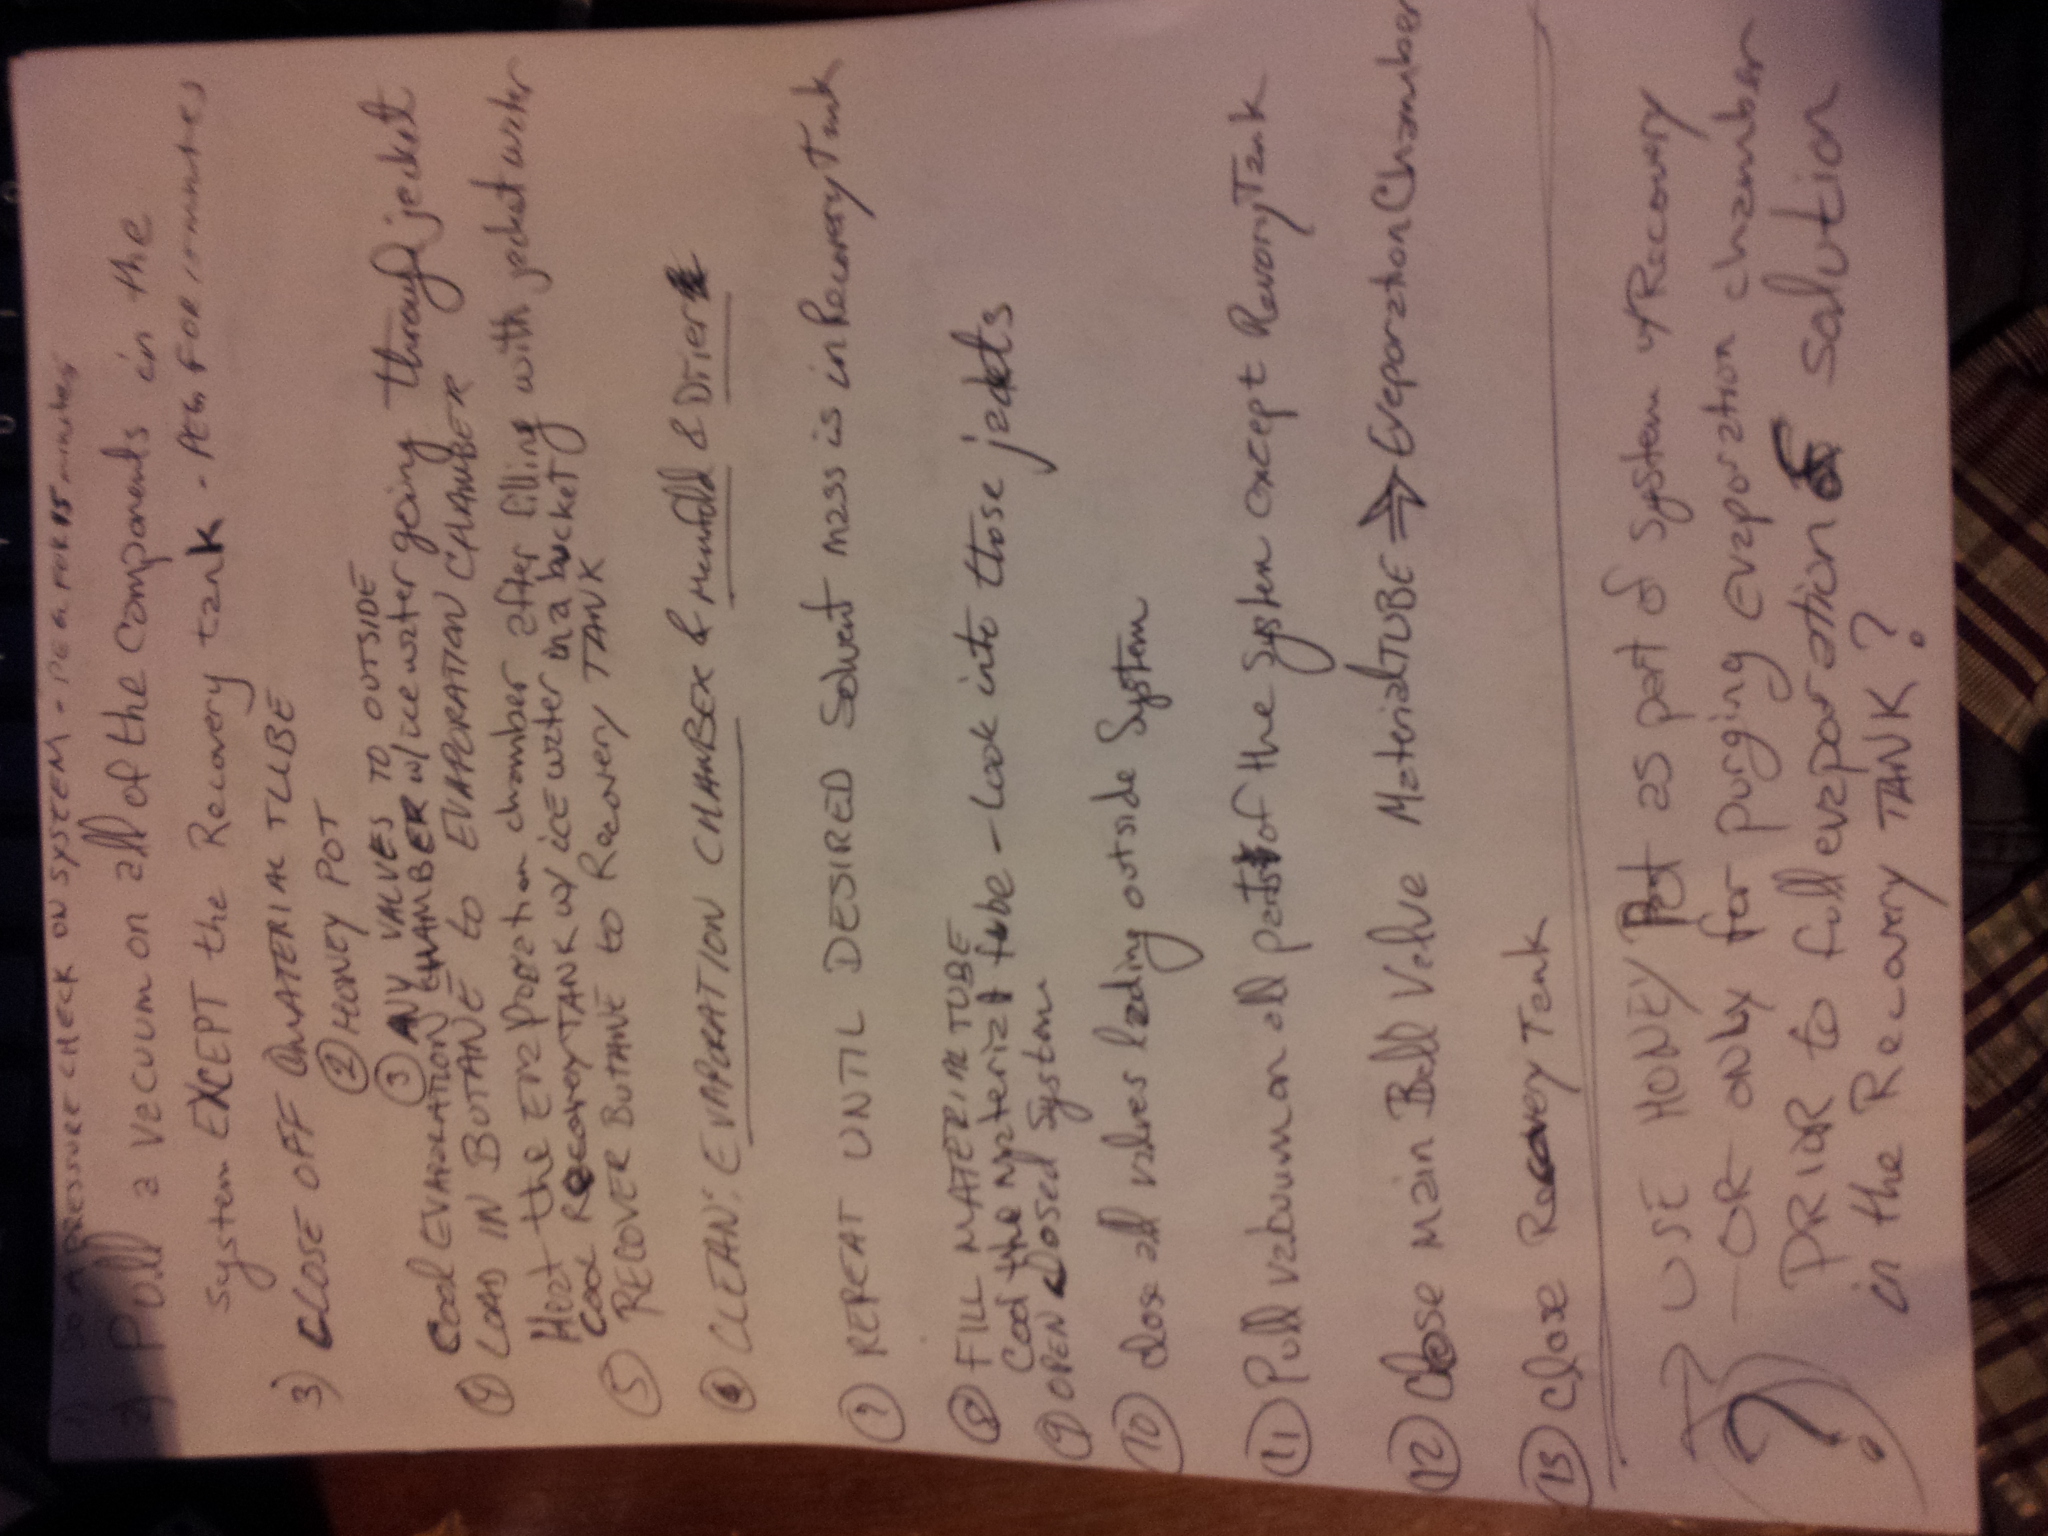 1) DO A PRESSURE CHECK ON SYSTEM - PEG FOR 15 minutes
2) Pull a vacuum on all of the components in the
System EXCEPT the Recovery tank - PEG FOR minutes
3) CLOSE OFF ① MATERIAL TUBE
② HONEY POT
③ ANY VALVES TO OUTSIDE
Cool EVAPORATION CHAMBER w/ice water going through jacket
④ LOAD IN BUTANE to EVAPORATION CHAMBER
Heat the Evaporation chamber after filling with jacket water
Cool Recovery TANK w/ ice water in a bucket
⑤ RECOVER BUTANE to Recovery TANK
⑥ CLEAN: EVAPORATION CHAMBER & Manifold & Drier
⑦ REPEAT UNTIL DESIRED Solvent mass is in Recovery Tank
⑧ FILL MATERIAL TUBE
Cool the material tube - Look into those jackets
⑨ OPEN Closed System
⑩ Close all valves leading outside System
⑪ Pull vacuum on all parts of the System except Recovery Tank
⑫ Close main Ball Valve Material TUBE ⇒ Evaporation Chamber
⑬ Close Recovery Tank
→ USE HONEY Pot as part of System w/Recovery
- OR only for purging evaporation chamber
? PRIOR to full evaporation of solution
in the Recovery TANK?